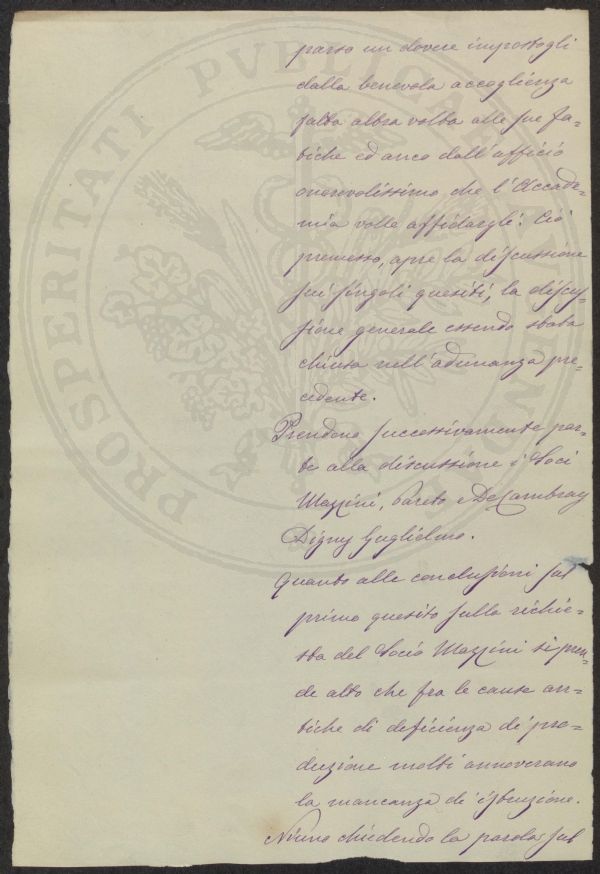 PROSPERITATI PVBLICAE
parso un dovere impostogli
dalla benevola accoglienza
fatta altra volta alle sue fa-
tiche ed anco dall'ufficio
onorevolissimo che l'Accade-
mia volle affidargli. Ciò
premesso, apre la discussione
sui singoli quesiti, la discus-
sione generale essendo stata
chiusa nell'adunanza pre-
cedente.
Prendono successivamente par-
te alla discussione i Soci
Mazzini, Pareto e De Cambray
Digny Guglielmo.
Quanto alle conclusioni sul
primo quesito sulla richie-
sta del Socio Mazzini si pren-
de atto che fra le cause an-
tiche di deficienza di pro-
duzione molti annoverano
la mancanza di istruzione.
Niuno chiedendo la parola sul